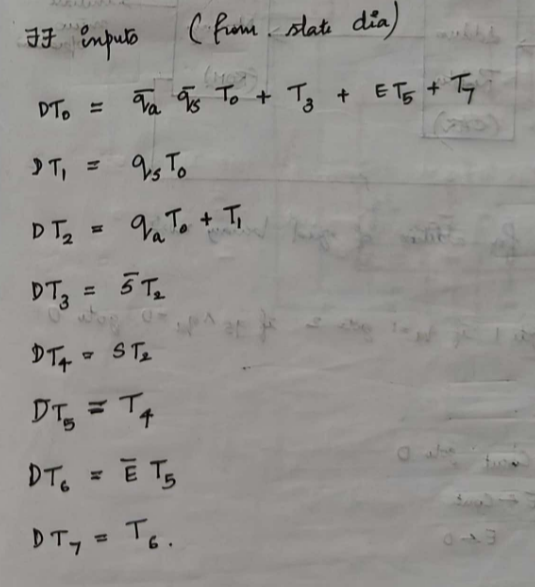 FF inputs (from state dia)
DT₀ = q̅ₐ q̅ₛ T₀ + T₃ + ET₅ + T₇
DT₁ = qₛT₀
DT₂ = qₐT₀ + T₁
DT₃ = S̅T₂
DT₄ = ST₂
DT₅ = T₄
DT₆ = E̅ T₅
DT₇ = T₆.